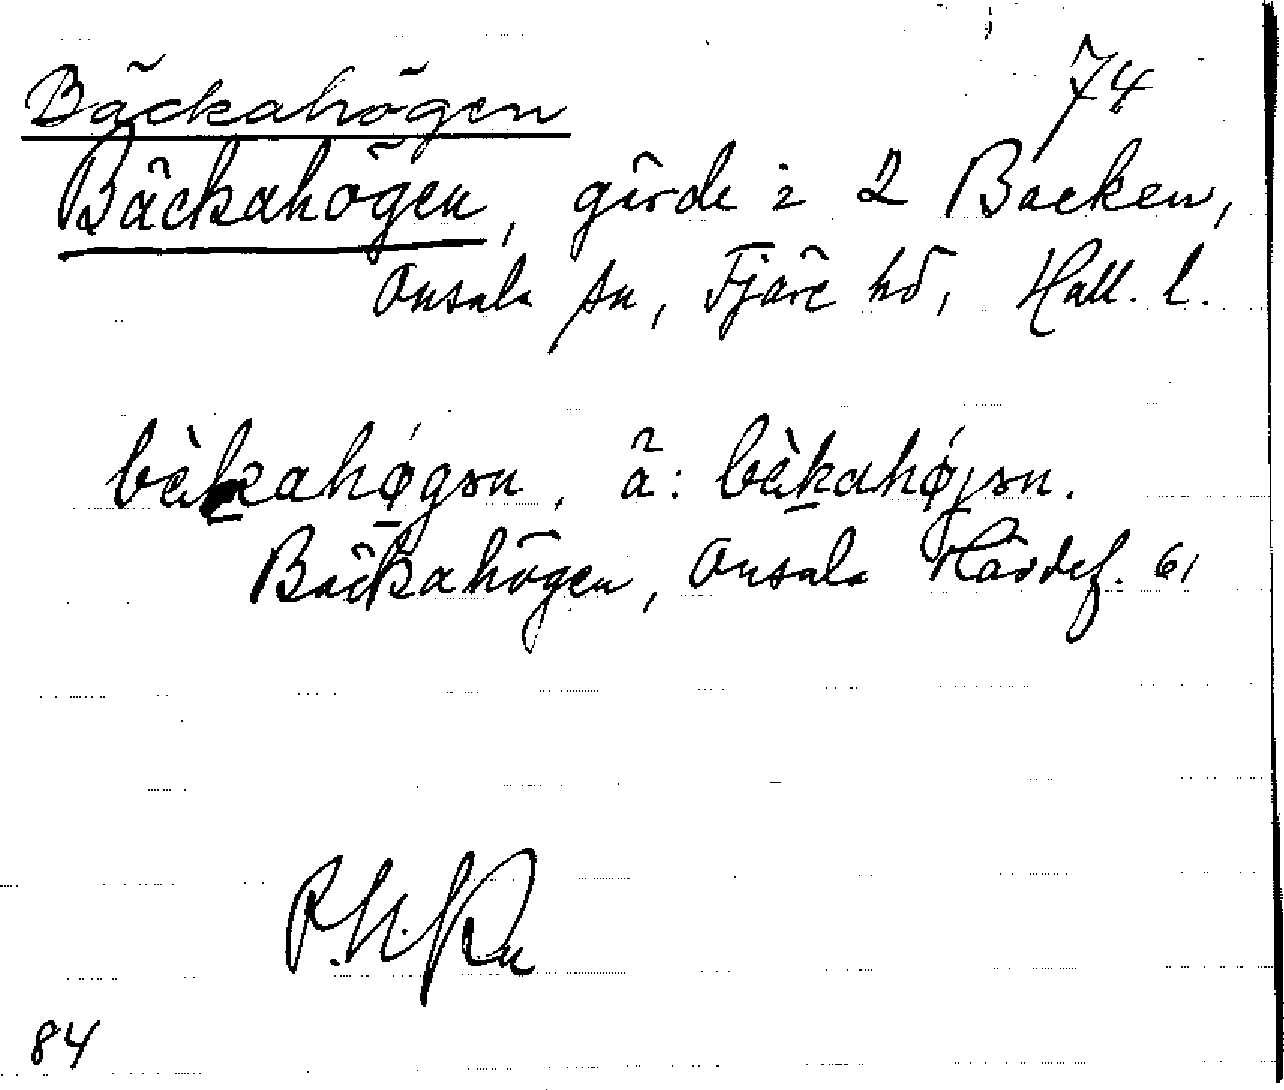 Bäckahögen 74
Bäckahögen, gärde i 2 Backen,
Onsala sn, Fjäre hd, Hall. l.
bὲkahøgən, ä: bὲkahøjən.
Bäckahögen, Onsala Härdef. 61
84